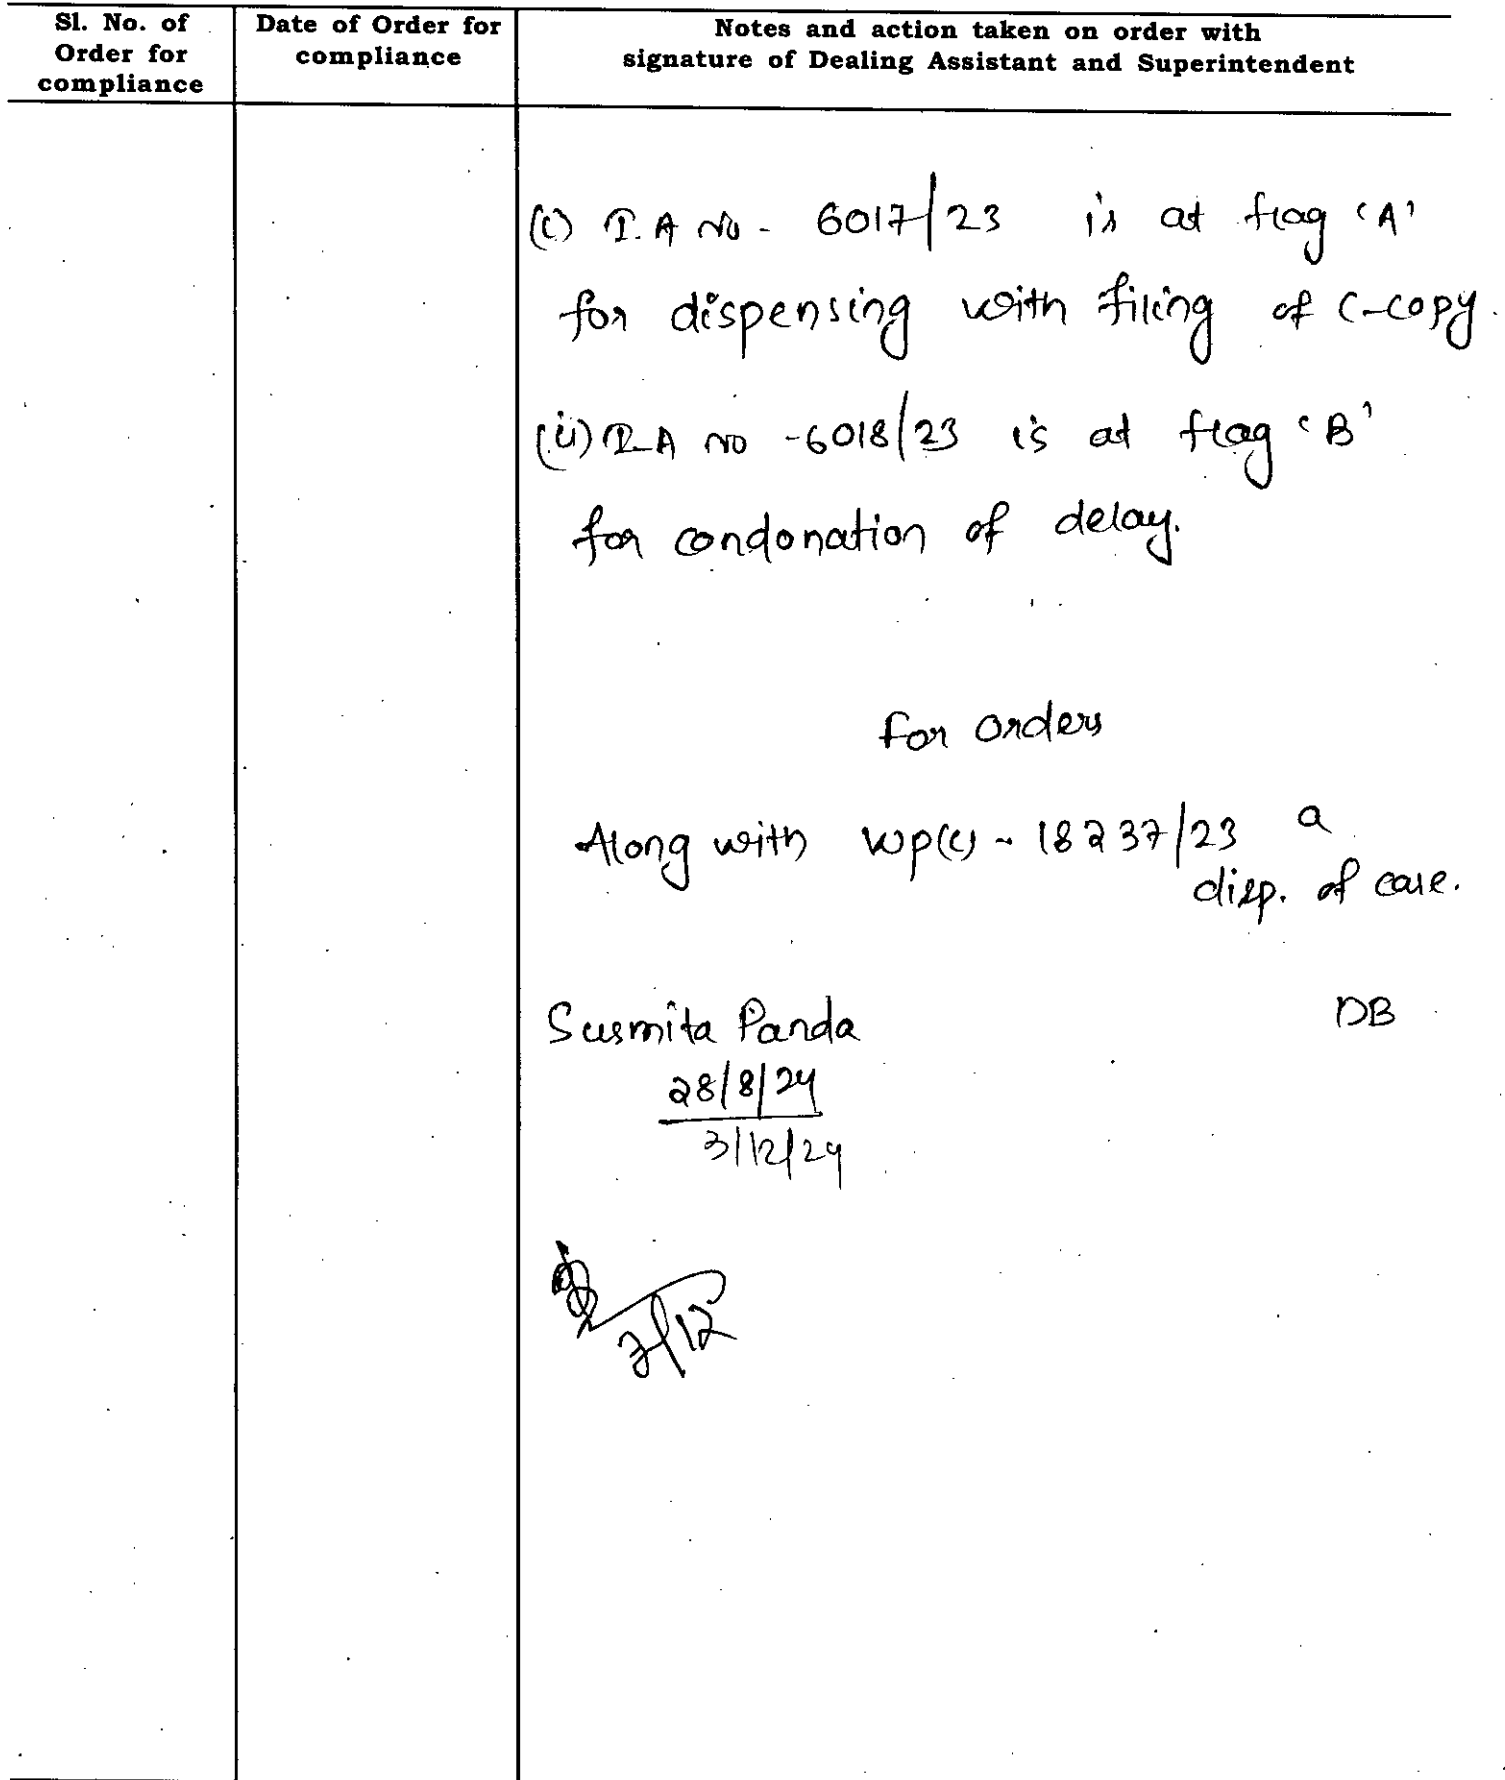 Sl. No. of
Order for
compliance
Date of Order for
compliance
Notes and action taken on order with
signature of Dealing Assistant and Superintendent
(i) I.A No - 6017/23 is at flag 'A'
for dispensing with filing of C-copy.
(ii) I.A no - 6018/23 is at flag 'B'
for condonation of delay.
for orders
Along with Wp(c) - 18237/23 a
disp. of case.
Susmita Panda
DB
28/8/24
3/12/24
3/12